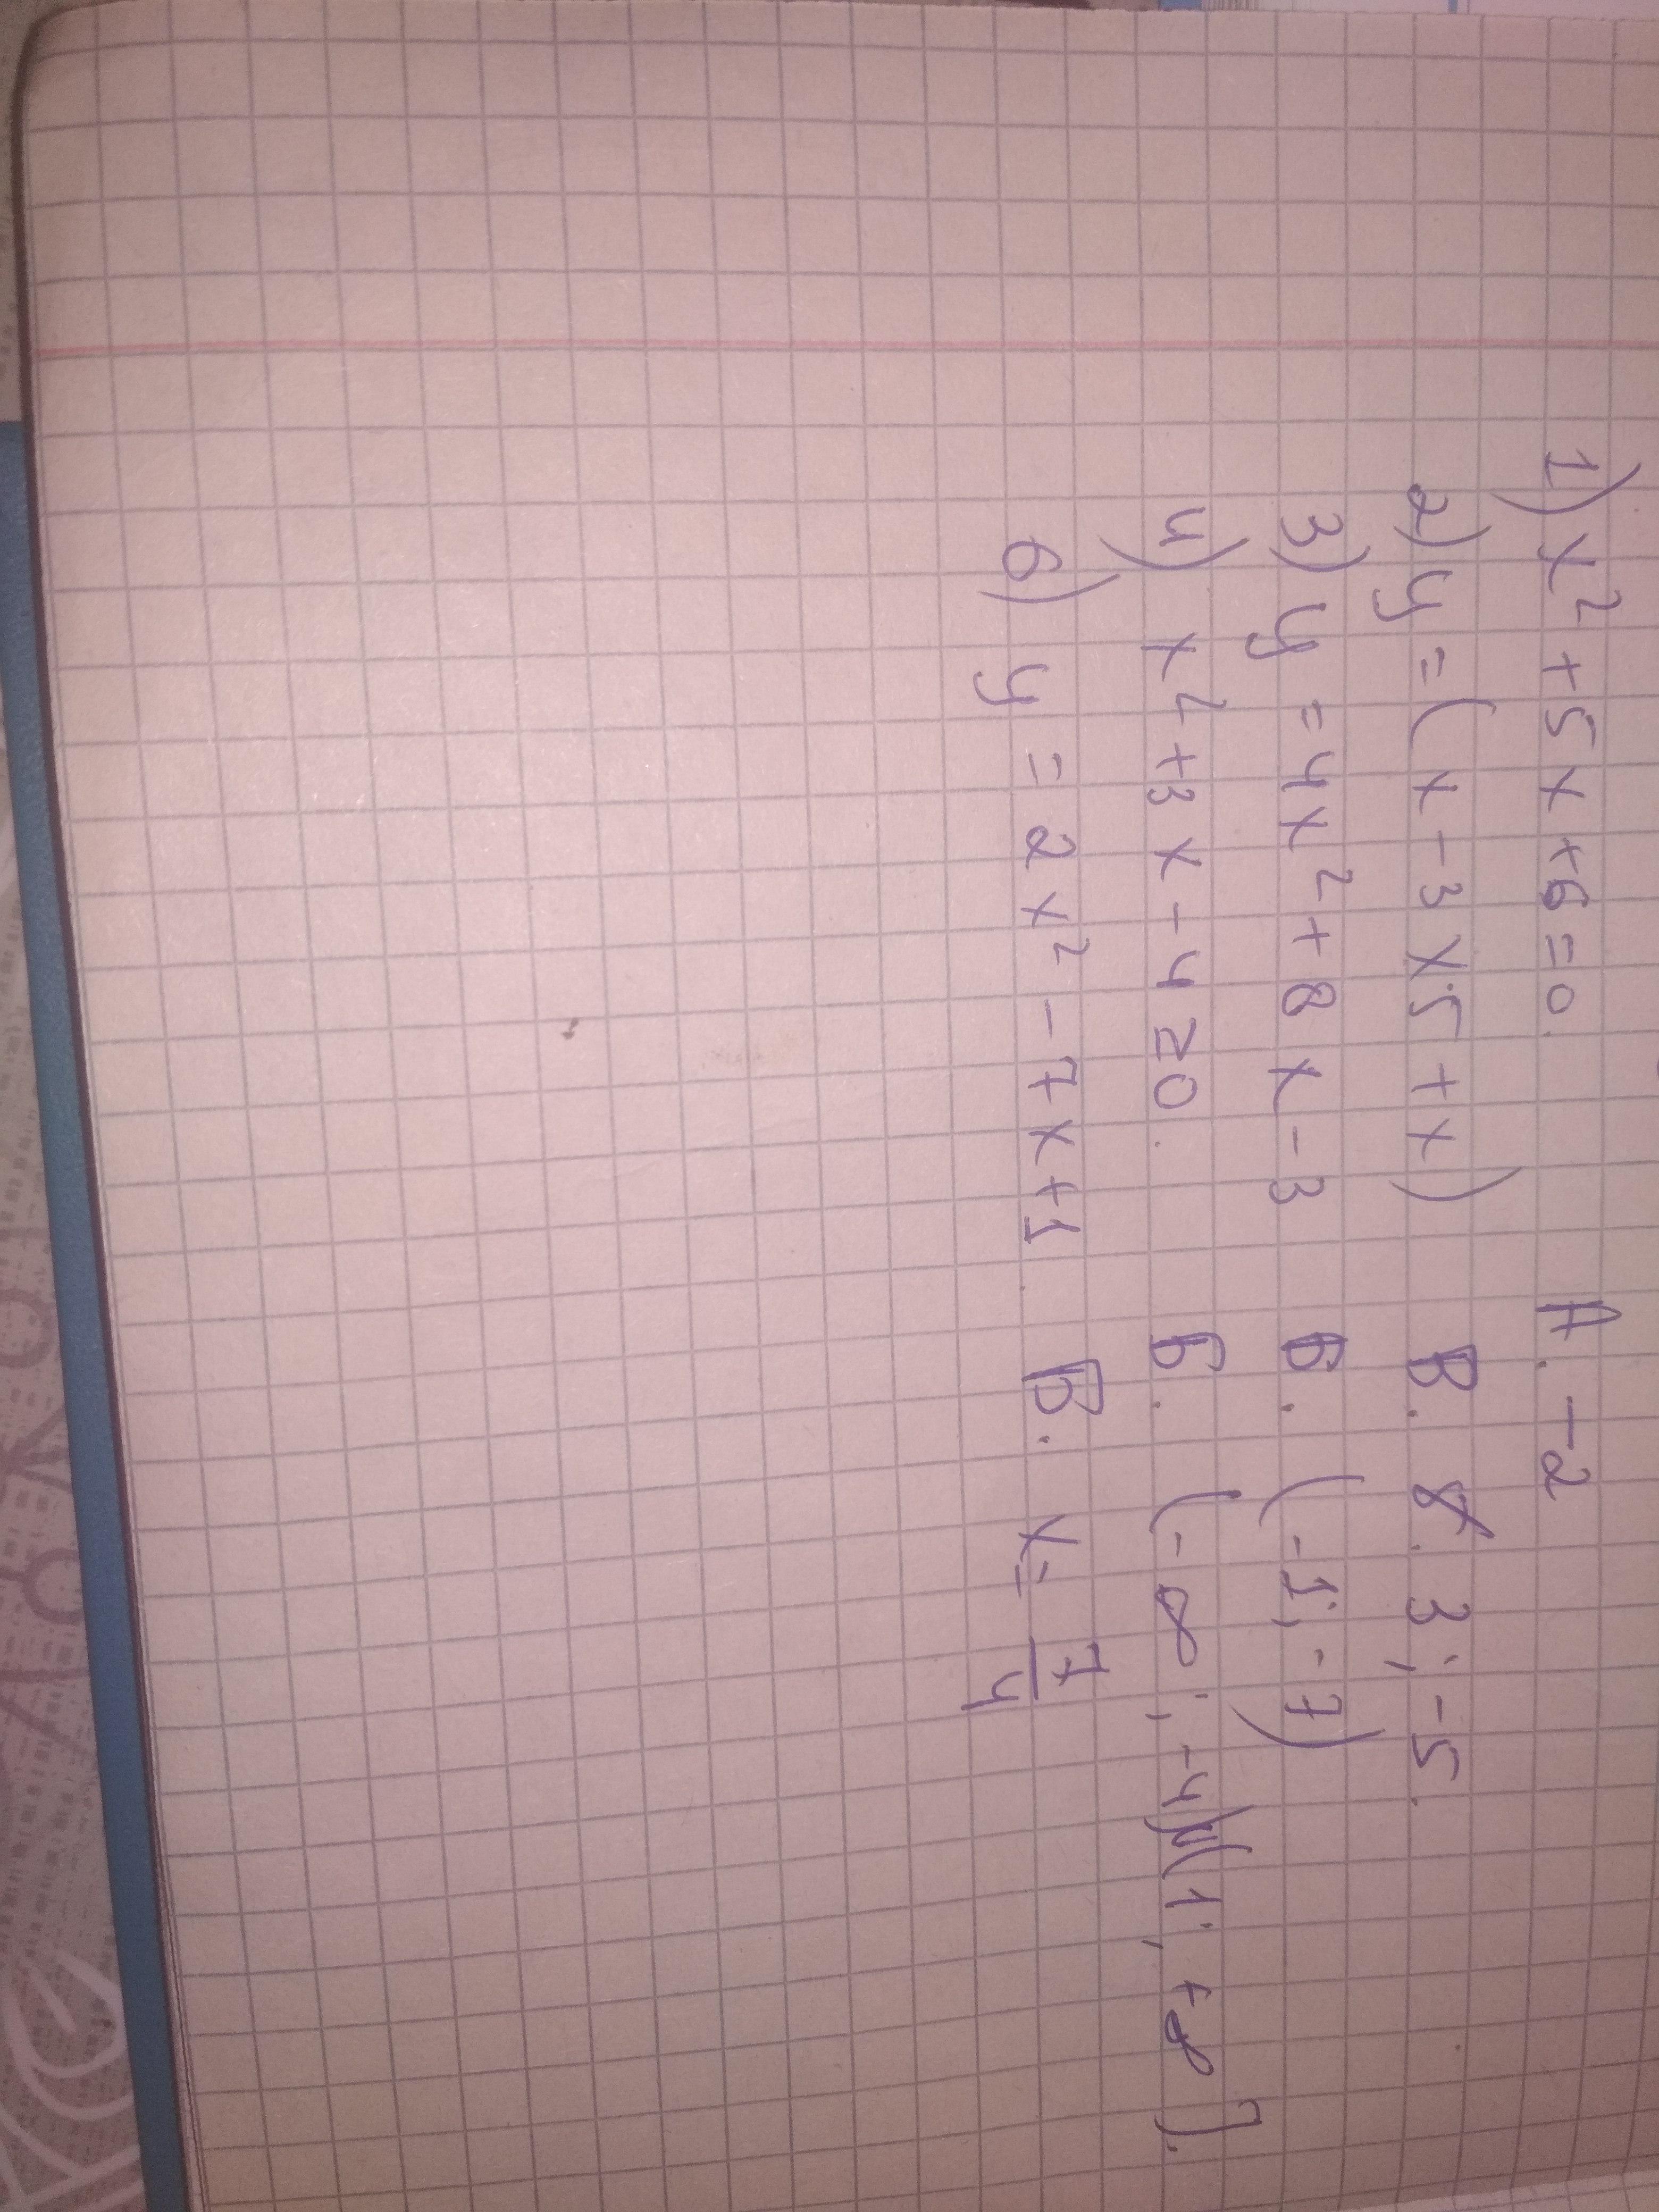 1) x² + 5x + 6 = 0. А. -2
2) y = (x - 3)(5 + x) В. 3; -5.
3) y = 4x² + 8x - 3 Б. (-1; -7)
4) x² + 3x - 4 ≥ 0. Б. (-∞; -4)U(1; +∞].
6) y = 2x² - 7x + 1. В. x = 7/4